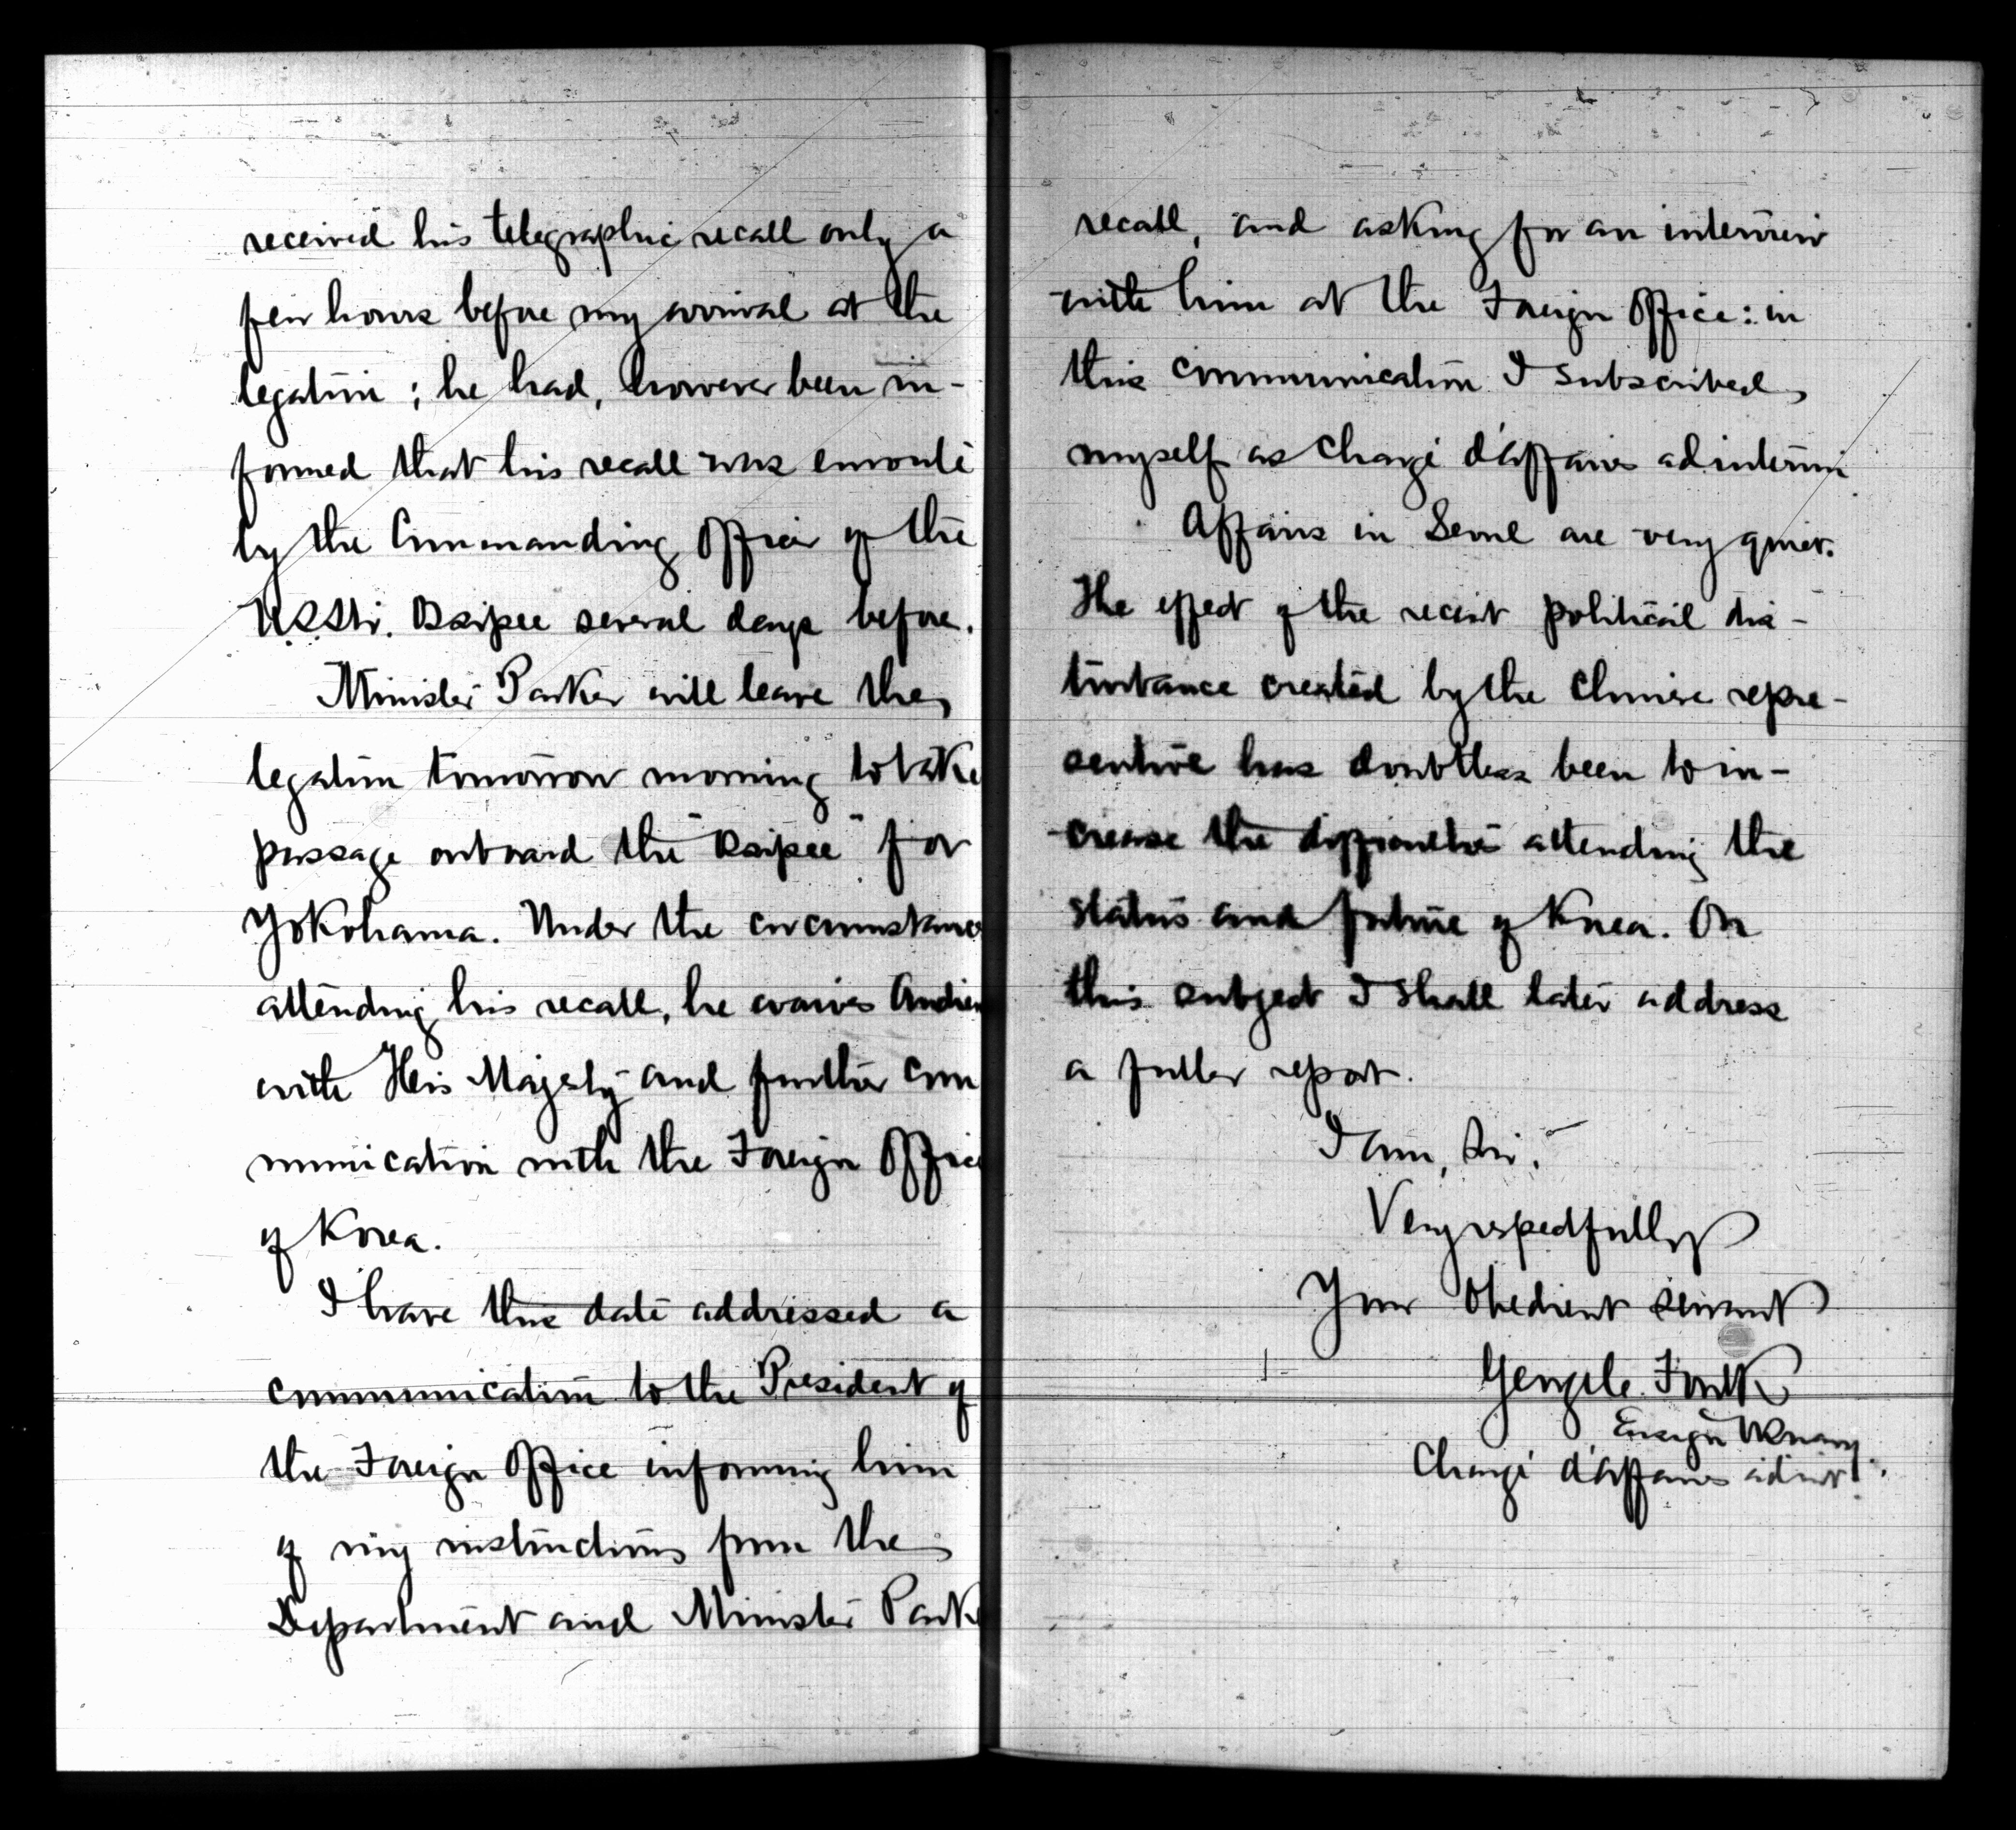 received his telegraphic recall only a
few hours before my arrival at the
legation; he had, however been in-
formed that his recall was enroute
by the Commanding Officer of the
U.S.S. Ossipee several days before.
Minister Parker will leave the
legation tomorrow morning to take
passage onboard the "Ossipee" for
Yokohama. Under the circumstances
attending his recall, he waives Audien
with His Majesty and further com
munication with the Foreign Office
of Korea.
I have this date addressed a
communication to the President of
the Foreign Office informing him
of my instructions from the
Department and Minister Parke
recall, and asking for an interview
with him at the Foreign Office: in
this communication I subscribed
myself as Chargé d'affaires ad interim
Affairs in Seoul are very quiet.
The effect of the recent political dis-
turbance created by the Chinese repre-
sentive has doubtless been to in-
crease the difficulties attending the
status and future of Korea. On
this subject I shall later address
a fuller report.
I am, Sir,
Very respectfully
Your Obedient servant
George C. Foulk
Ensign U.S. Navy
Chargé d'affaires ad int.